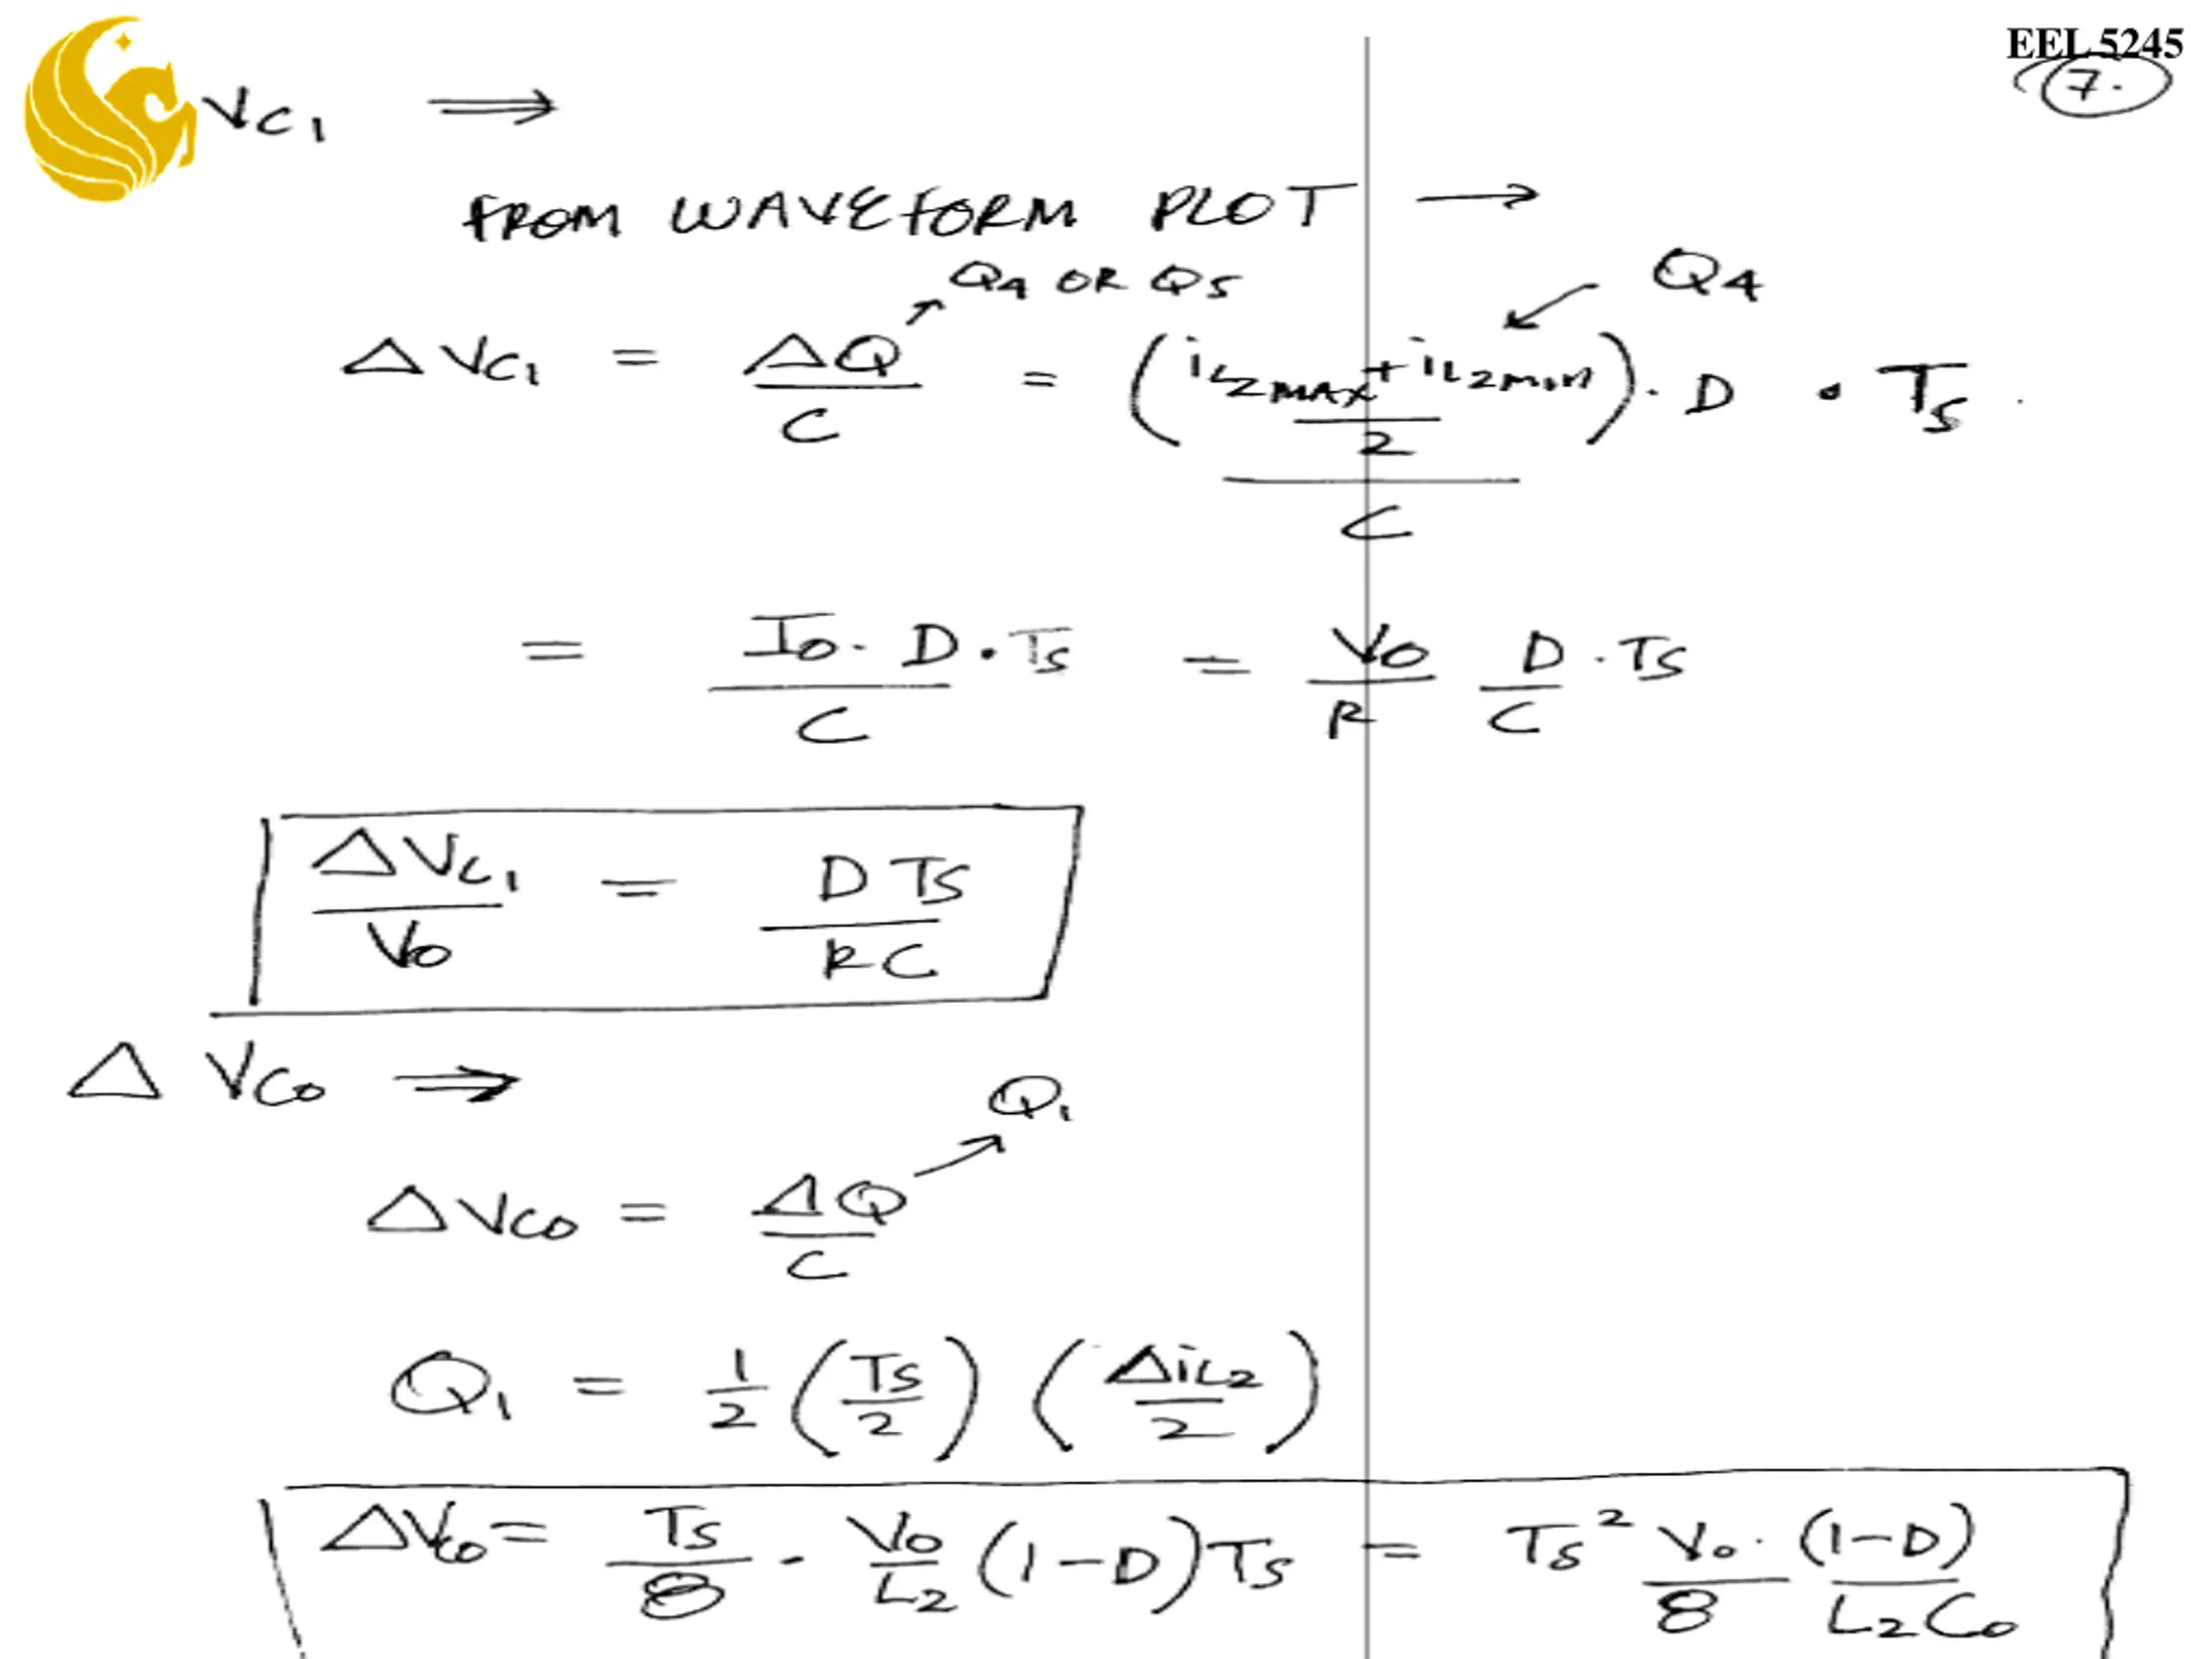 EEL 5245
7.
VC1 ⇒
FROM WAVEFORM PLOT →
Q4 OR Q5
Q4
ΔVC1 = ΔQ/C = ((iL2MAX + iL2MIN)/2) · D · Ts / C
= Io · D · Ts / C = Vo/R D/C · Ts
ΔVC1/Vo = D Ts/RC
ΔVCo ⇒
Q1
ΔVCo = ΔQ/C
Q1 = 1/2 (Ts/2) (ΔiL2/2)
ΔVCo = Ts/8 · Vo/L2 (1-D)Ts = Ts² Vo/8 · (1-D)/L2Co